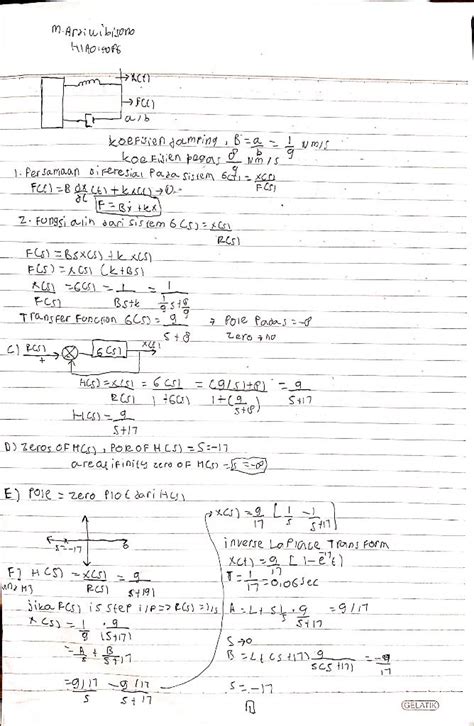 M. Ardi wibisono
x(t)
F(t)
a/b
koefisien damping, B = a/b = 1/9 Nm/s
koefisien pegas 8/9 Nm/s
1. Persamaan Diferesial Pada sistem G(s) = x(s)/F(s)
F(t) = B dx(t)/dt + kx(t)
F = Bẋ + kx
2. Fungsi alih dari sistem G(s) = x(s)/R(s)
F(s) = BSX(s) + k x(s)
F(s) = x(s) (k+BS)
x(s)/F(s) = G(s) = 1/(BS+k) = 1/(1/9 s + 8/9)
Transfer Function G(s) = 9/(s+8) → Pole Pada s = -8
zero → no
C) R(s) + G(s) x(s)
H(s) = x(s)/R(s) = G(s)/(1+G(s)) = (9/(s)+8)/(1+(9/(s+8))) = 9/(s+17)
H(s) = 9/(s+17)
D) Zeros OF H(s), POR OF H(s) = S = -17
area ifinity zero OF H(s) = s = -∞
E) Pole = zero Plo(dari H(s)
s = -17
F) H(s) = x(s)/R(s) = 9/(s+19)
jika F(s) is step i/p => R(s) = 1/s
x(s) = 1/9 · 9/(s+17)
= A/s + B/(s+17)
= 9/17/s - 9/17/(s+17)
x(s) = 9/17 [1/s - 1/(s+17)]
inverse LaPlace Transform
x(t) = 9/17 [1 - e^-17t]
T = 1/17 = 0,06 sec
A = Lt s 1/s · 9/(s+17) = 9/17
s→0
B = Lt (s+17) 9/(s(s+17)) = -9/17
s = -17
GELATIK